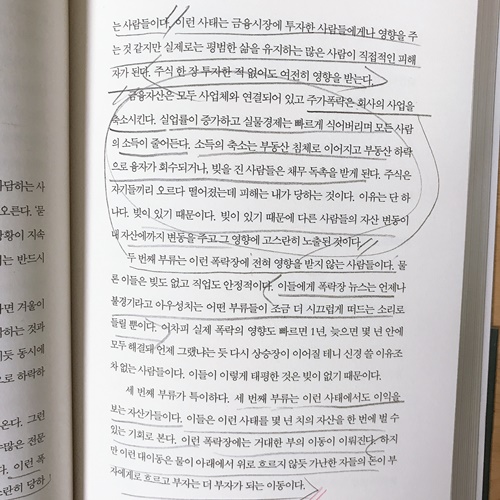 는 사람들이다. 이런 사태는 금융시장에 투자한 사람들에게나 영향을 주
는 것 같지만 실제로는 평범한 삶을 유지하는 많은 사람이 직접적인 피해
자가 된다. 주식 한 장 투자한 적 없어도 여전히 영향을 받는다.
금융자산은 모두 사업체와 연결되어 있고 주가폭락은 회사의 사업을
축소시킨다. 실업률이 증가하고 실물경제는 빠르게 식어버리며 모든 사람
의 소득이 줄어든다. 소득의 축소는 부동산 침체로 이어지고 부동산 하락
으로 융자가 회수되거나, 빚을 진 사람들은 채무 독촉을 받게 된다. 주식은
자기들끼리 오르다 떨어졌는데 피해는 내가 당하는 것이다. 이유는 단 하
나다. 빚이 있기 때문이다. 빚이 있기 때문에 다른 사람들의 자산 변동이
내 자산에까지 변동을 주고 그 영향에 고스란히 노출된 것이다.
두 번째 부류는 이런 폭락장에 전혀 영향을 받지 않는 사람들이다. 물
론 이들은 빚도 없고 직업도 안정적이다. 이들에게 폭락장 뉴스는 언제나
불경기라고 아우성치는 어떤 부류들이 조금 더 시끄럽게 떠드는 소리로
들릴 뿐이다. 어차피 실제 폭락의 영향도 빠르면 1년, 늦으면 몇 년 안에
모두 해결돼 언제 그랬냐는 듯 다시 상승장이 이어질 테니 신경 쓸 이유조
차 없는 사람들이다. 이들이 이렇게 태평한 것은 빚이 없기 때문이다.
세 번째 부류가 특이하다. 세 번째 부류는 이런 사태에서도 이익을
보는 자산가들이다. 이들은 이런 사태를 몇 년 치의 자산을 한 번에 벌 수
있는 기회로 본다. 이런 폭락장에는 거대한 부의 이동이 이뤄진다. 하지
만 이런 대이동은 물이 아래에서 위로 흐르지 않듯 가난한 자들의 돈이 부
자에게로 흐르고 부자는 더 부자가 되는 이동이다.
담하는 사
오른다. '물
상황이 지속
는 반드시
다면 겨울이
하는 것과
듯 동시에
으로 하락하
온다. 그런
수많은 전문
다. 이런 폭
소란히 당하